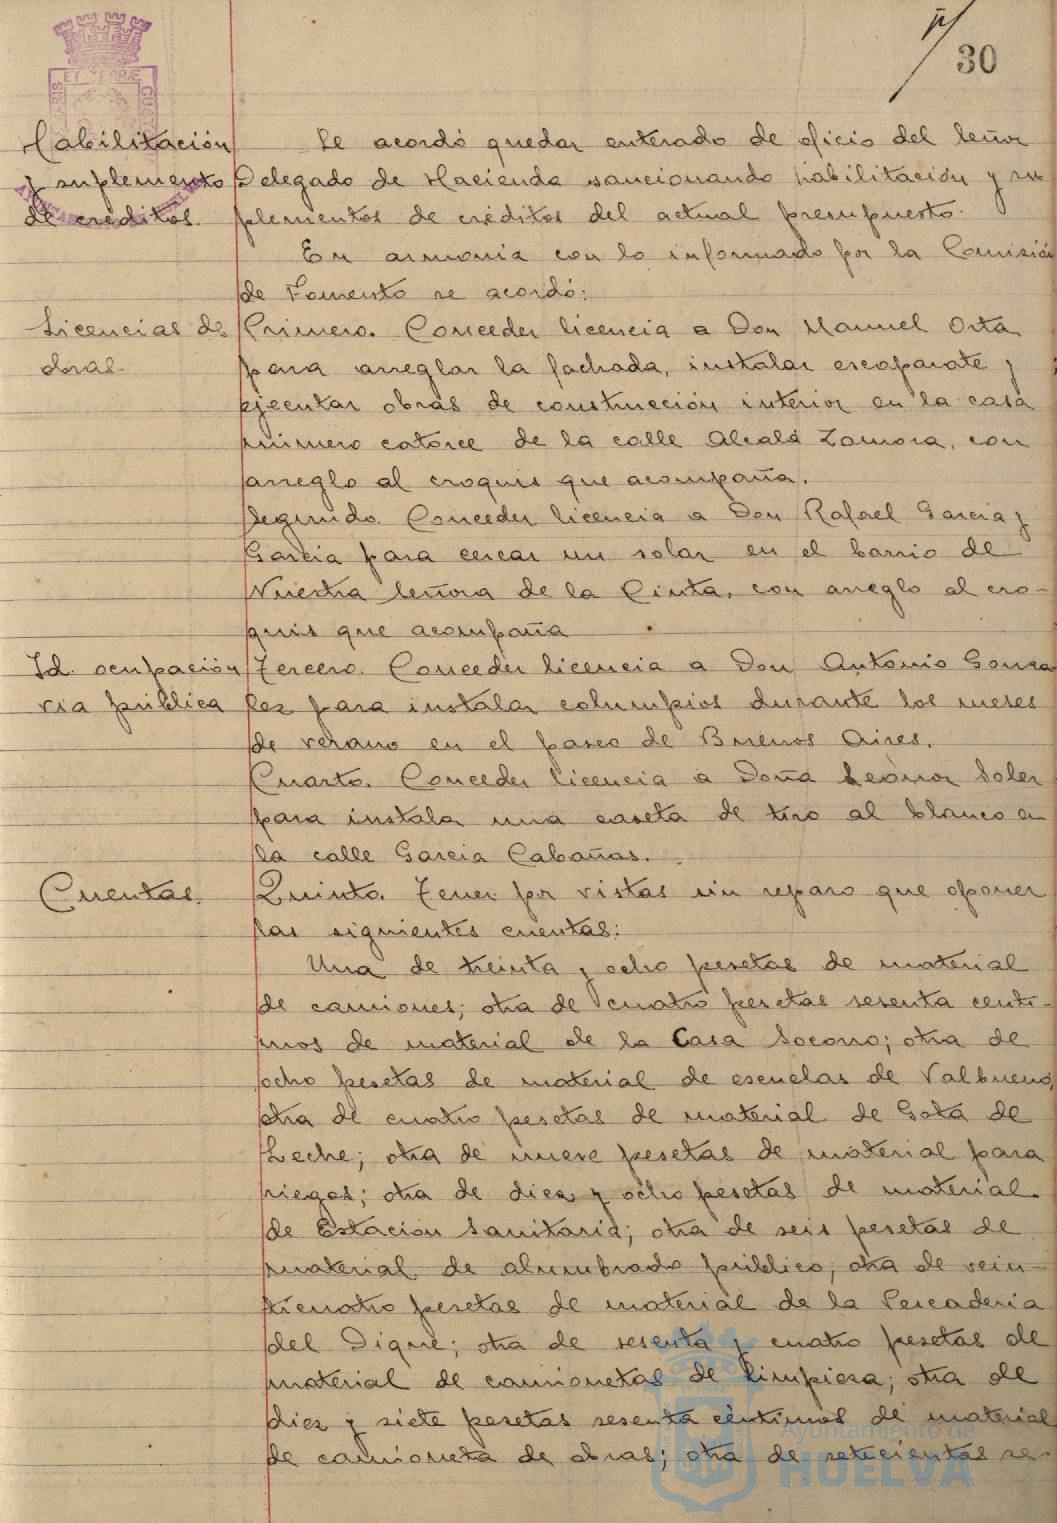 30
ET TERRÆ
Habilitación
y suplemento
de créditos.
Se acordó quedar enterado de oficio del Señor
Delegado de Hacienda sancionando habilitación y su
plementos de créditos del actual presupuesto.
En armonia con lo informado por la Comisión
de Fomento se acordó:
Licencias de
obras.
Primero. Conceder licencia a Don Manuel Orta
para arreglar la fachada, instalar escaparate y
ejecutar obras de construcción interior en la casa
número catorce de la calle Alcalá Zamora, con
arreglo al croquis que acompaña.
Segundo. Conceder licencia a Don Rafael Garcia y
Garcia para cercar un solar en el barrio de
Nuestra Señora de la Cinta, con arreglo al cro-
quis que acompaña
Id. ocupación
via pública
Tercero. Conceder licencia a Don Antonio Gonza
lez para instalar columpios durante los meses
de verano en el paseo de Buenos Aires.
Cuarto. Conceder licencia a Doña Leonor Soler
para instalar una caseta de tiro al blanco en
la calle Garcia Cabañas.
Cuentas.
Quinto. Tener por vistas sin reparo que oponer
las siguientes cuentas:
Una de treinta y ocho pesetas de material
de camiones; otra de cuatro pesetas sesenta centi-
mos de material de la Casa Socorro; otra de
ocho pesetas de material de escuelas de Valbueno,
otra de cuatro pesetas de material de Gota de
Leche; otra de nueve pesetas de material para
riegos; otra de diez y ocho pesetas de material
de Estación Sanitaria; otra de seis pesetas de
material de alumbrado público; otra de vein-
ticuatro pesetas de material de la Pescaderia
del Dique; otra de sesenta y cuatro pesetas de
material de camionetas de limpieza; otra de
diez y siete pesetas sesenta céntimos de material
de camioneta de obras; otra de setecientas se-
Ayuntamiento de
HUELVA